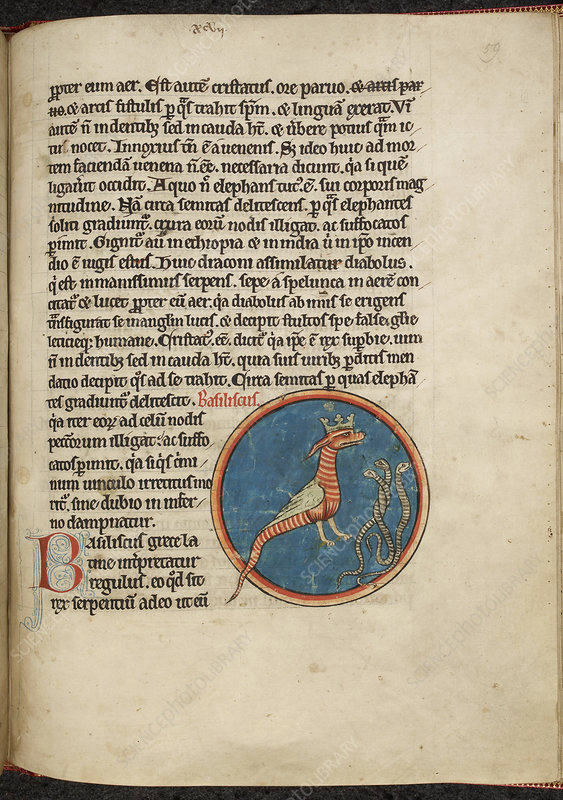 xcvij
59
propter eum aer. Est autē cristatus. ore paruo. ⁊ artis par
uo. ⁊ artis fistulis p̱ q̄s trahit sp̄m. ⁊ linguā exerat. Vī
autē ñ in dentib; sed in cauda h̄t. ⁊ ūbere potius q̄m ic
tu nocet. Innoxius tñ ē a uenenis. S; ideo huic ad mor
tem faciendā uenena ñ eē. necessaria dicunt. q̇a si quē
ligauit occidit. A quo ñ elephans tut᷒ ē. sui corporis mag
nitudine. Nā circa semitas delitescens. p̱ q̄s elephantes
soliti gradiunt᷒. crura eorū nodis illigat. ac suffocatos
perimit. Gignit᷒ aū in ethiopia ⁊ in india ů in ip̄o incen
dio ē iugis estus. Huic draconi assimilatur diabolus.
q̇ est inmanissimus serpens. sepe a spelunca in aerē con
citat᷒ ⁊ lucet propter eū aer. q̇a diabolus ab imis se erigens
t̄nsfigurat se in angl̄m lucis. ⁊ decipit stultos spe false. gl̄ie
leticieq; humane. Cristat᷒. eē. dicit᷒ q̇a ip̄e ē rex superbie. uim
ñ in dentib; sed in cauda h̄t. quia suis uirib; p̱ditis men
datio decipit q̄s ad se trahit. Circa semitas p̱ quas elephā
tes gradiunt᷒ delitescit. Basiliscus.
q̇a iter eor᷒ ad celū nodis
peccatorum illigat. ac suffo
catos p̱imit. q̇a si q̇s c̄mi
num uinculo irretitus mo
rit᷒. sine dubio in infer
no dampnatur.
Basiliscus grece la
tine int̄pretatur
regulus. eo qd̄ sit
rex serpentiū adeo ut eū
SCIENCEPHOTOLIBRARY